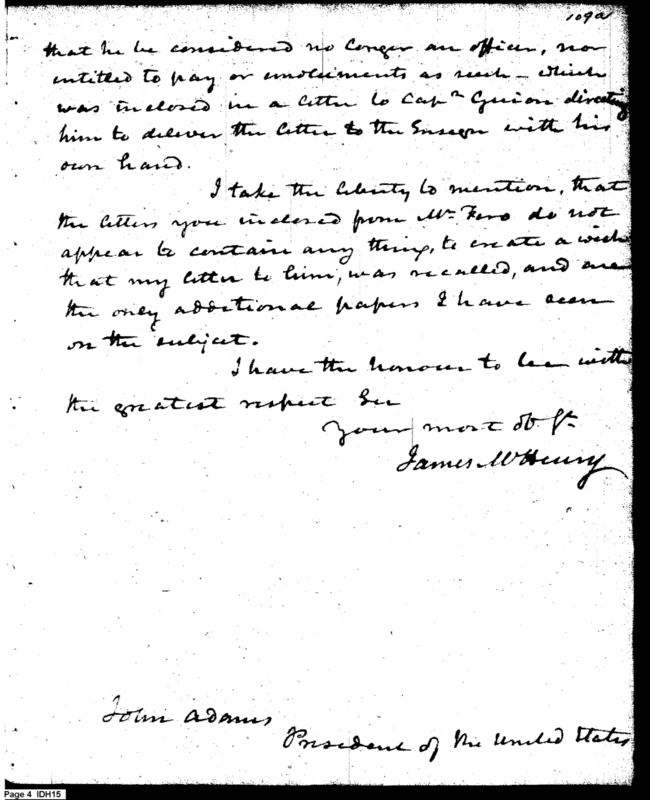 109a
that he be considered no longer an officer, nor
entitled to pay or emoluments as such – which
was inclosed in a letter to Capn Guion directing
him to deliver the letter to the Ensign with his
own hand.
I take the liberty to mention, that
the letters you inclosed from Mr. Fero do not
appear to contain any thing, to create a wish
that my letter to him, was recalled, and are
the only additional papers I have seen
on the subject.
I have the honour to be with
the greatest respect Sir
Your most ob St
James McHenry
John Adams
President of the United States
Page 4 IDH15